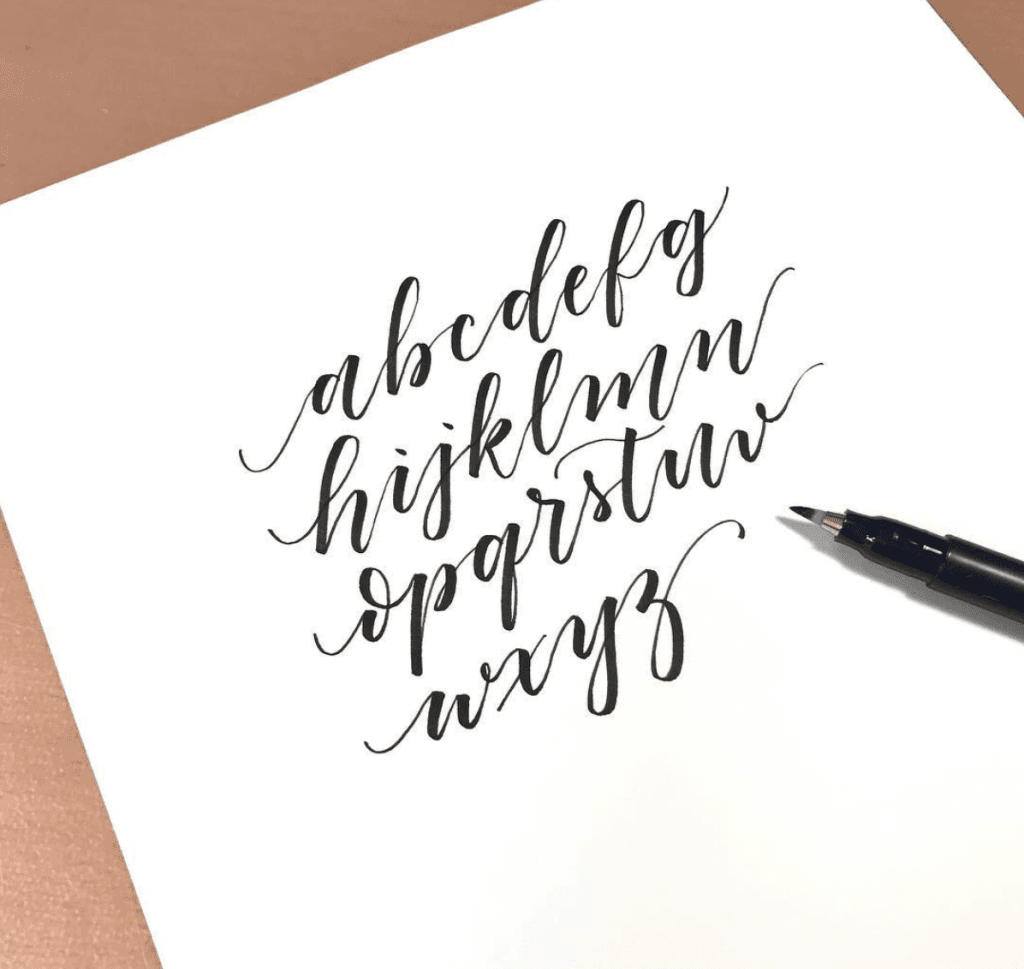 abcdefg
hijklmn
opqrstuv
wxyz